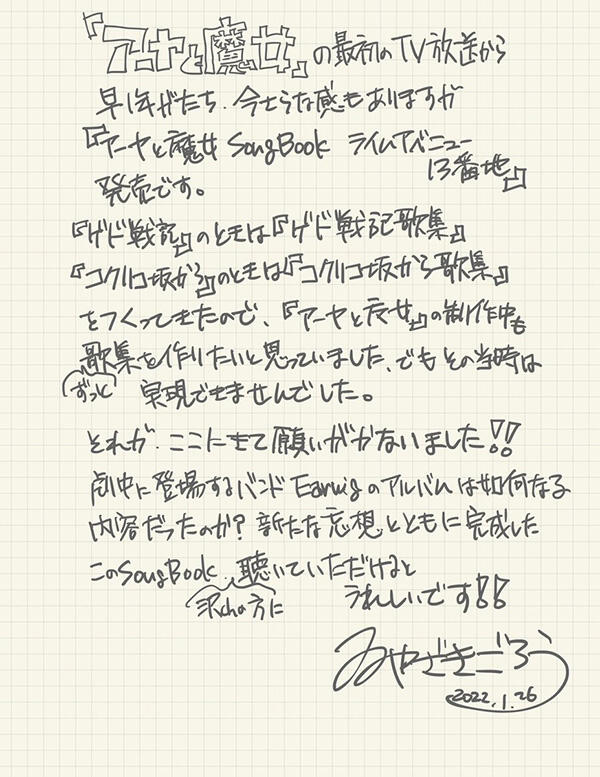 『アーヤと魔女』の最初のTV放送から
早1年がたち、今さらな感もありますが
『アーヤと魔女 SongBook ライムアベニュー
13番地』
発売です。
『ゲド戦記』のときは『ゲド戦記歌集』
『コクリコ坂から』のときは『コクリコ坂から歌集』
をつくってきたので、『アーヤと魔女』の制作中も
歌集を作りたいと思っていました、でもその当時は
ずっと 実現できませんでした。
それが、ここにきて願いがかないました!!
劇中に登場するバンド Earwigのアルバムは如何なる
内容だったのか? 新たな妄想とともに完成した
このSongBook、聴いていただけると
沢山の方に うれしいです!!
みやざきごろう
2022.1.26